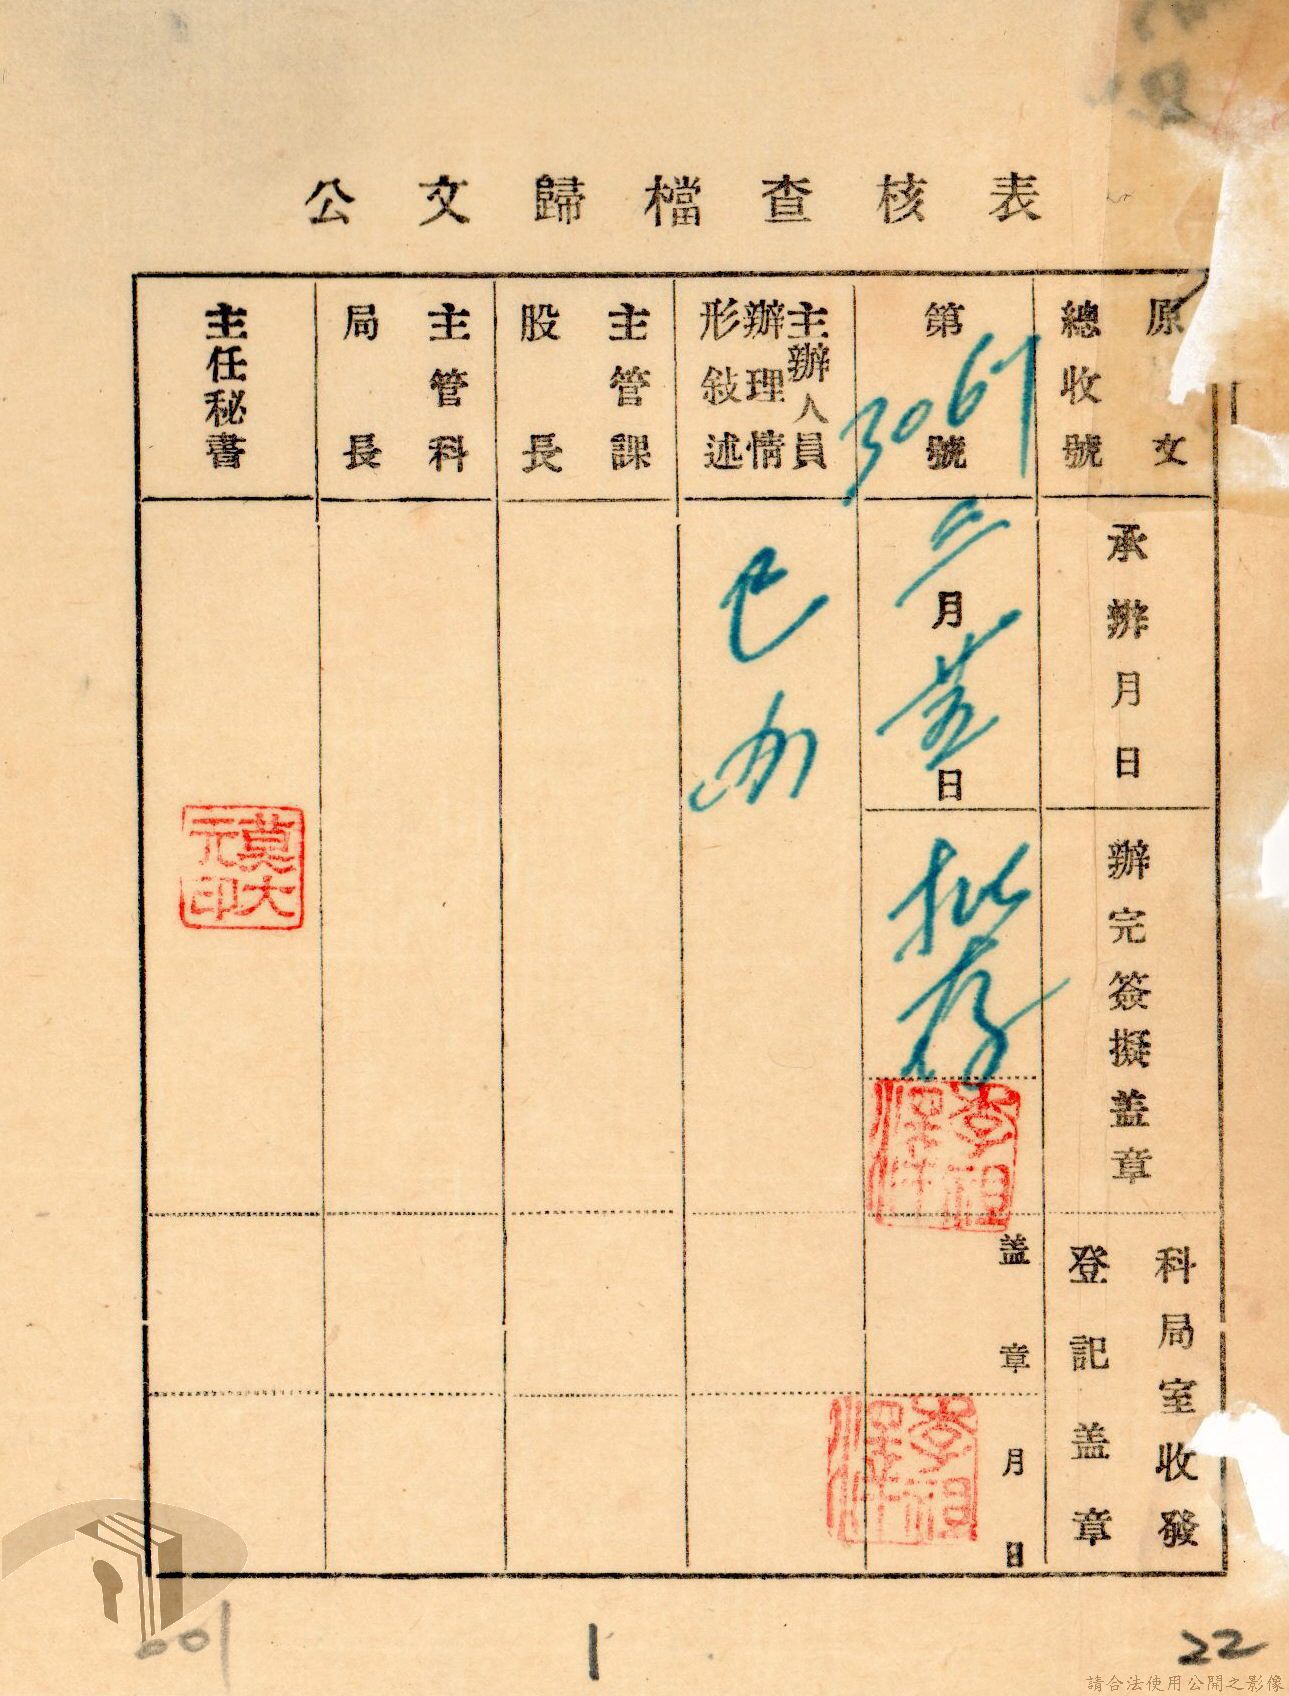 公文歸檔查核表
原文
總收號
第3067號
承辦月日
三月廿五日
辦完簽擬蓋章
批存
科局室收發
登記蓋章
蓋章
月日
主辦人員
辦理情
形敍述
已辦
主管課
股長
主管科
局長
主任秘書
莫大
元印
001
1
22
請合法使用公開之影像